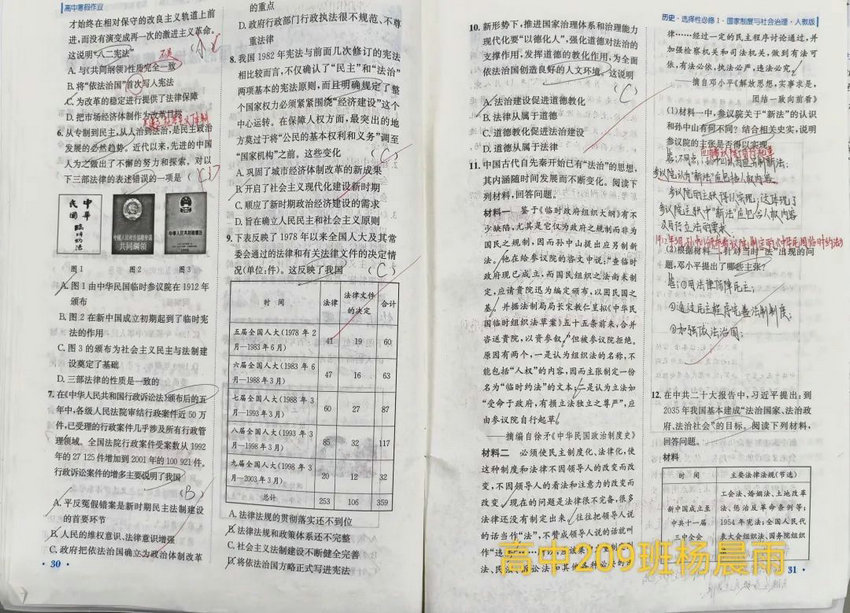 高中寒假作业
才始终在相对保守的改良主义轨道上前
进,而没有演变成再一次的激进主义革命。
这说明“八二宪法”
A. 与《共同纲领》性质完全一致
B. 将“依法治国”首次写入宪法
C. 为改革的稳定进行提供了法律保障
D. 把市场经济体制作为改革目标
6. 从专制到民主,从人治到法治,是民主政治
发展的必然趋势。近代以来,先进的中国
人为之做出了不懈的努力和探索。对以
下三部法律的表述错误的一项是
(C)
图1
图2
图3
A. 图1由中华民国临时参议院在1912年
颁布
B. 图2在新中国成立初期起到了临时宪
法的作用
C. 图3的颁布为社会主义民主与法制建
设奠定了基础
D. 三部法律的性质是一致的
7. 在《中华人民共和国行政诉讼法》颁布后的五
年中,各级人民法院审结行政案件近50万
件,已受理的行政案件几乎涉及所有行政管
理领域。全国法院行政案件受案数从1992
年的27 125件增加到2001年的100 921件。
行政诉讼案件的增多主要说明了我国
(B)
A. 平反冤假错案是新时期民主法制建设
的首要环节
B. 人民的维权意识、法律意识增强
C. 政府把依法治国确立为政治体制改革
· 30 ·
的重点
D. 政府行政部门行政执法很不规范、不尊
重法律
8. 我国1982年宪法与前面几次修订的宪法
相比较而言,不仅确认了“民主”和“法治”
两项基本的宪法原则,而且明确规定了整
个国家权力必须紧紧围绕“经济建设”这个
中心运转。在保障人权方面,最突出的地
方莫过于将“公民的基本权利和义务”调至
“国家机构”之前。这些变化
(C)
A. 巩固了城市经济体制改革的新成果
B. 开启了社会主义现代化建设新时期
C. 顺应了新时期政治经济建设的需求
D. 旨在确立人民民主和社会主义原则
9. 下表反映了1978年以来全国人大及其常
委会通过的法律和有关法律文件的决定情
况(单位:件)。这反映了我国
(C)
时间 法律 法律文件的决定 合计
五届全国人大(1978年2月—1983年6月) 41 19 60
六届全国人大(1983年6月—1988年3月) 47 16 63
七届全国人大(1988年3月—1993年3月) 60 27 87
八届全国人大(1993年3月—1998年3月) 85 32 117
九届全国人大(1998年3月—2003年3月) 20 12 32
总计 253 106 359
A. 法律法规的贯彻落实还不到位
B. 法律法规和政策体系还不完整
C. 社会主义法制建设不断健全完善
D. 将依法治国方略正式写进宪法
历史·选择性必修1·国家制度与社会治理·人教版
10. 新形势下,推进国家治理体系和治理能力
现代化要“以德化人”,强化道德对法治的
支撑作用,发挥道德的教化作用,为全面
依法治国创造良好的人文环境。这说明
(C)
A. 法治建设促进道德教化
B. 法律从属于道德
C. 道德教化促进法治建设
D. 道德从属于法律
11. 中国古代自先秦开始已有“法治”的思想,
其内涵随时间发展而不断变化。阅读下
列材料,回答问题。
材料一 鉴于《临时政府组织大纲》有不
少缺陷,尤其是它仅为政府之规制而非为
国民之规制,因而孙中山提出应另制新
法。他在给参议院的咨文中说:“查临时
政府现已成立,而国民组织之法尚未制
定,应请贵院迅为编定颁布,以固民国之
基。并据法制局局长宋教仁呈拟《中华民
国临时组织法草案》五十五条前来,合并
咨送贵院,以资参叙。”但被参议院拒绝。
原因有两个,一是认为组织法的名称,不
能包括“人权”的内容,因而主张制定一份
名为“临时约法”的文本;二是认为立法如
“受命于政府,有损立法独立之尊严”,应
由参议院自行起草。
——摘编自徐矛《中华民国政治制度史》
材料二 必须使民主制度化、法律化,使
这种制度和法律不因领导人的改变而改
变,不因领导人的看法和注意力的改变而
改变。现在的问题是法律很不完备,很多
法律还没有制定出来。往往把领导人说
的话当作“法”,不赞成领导人说的话就叫
律……经过一定的民主程序讨论通过,并
且加强检察机关和司法机关,做到有法可
依,有法必依,执法必严,违法必究。
——摘自邓小平《解放思想,实事求是,
团结一致向前看》
(1)材料一中,参议院关于“新法”的认识
和孙中山有何不同?结合相关史实,说明
参议院的主张是否得以实现。
(2)根据材料二,针对当时“法”出现的问
题,邓小平提出了哪些主张?
12. 在中共二十大报告中,习近平提出:到
2035年我国基本建成“法治国家、法治政
府、法治社会”的目标。阅读下列材料,
回答问题。
材料
时间 主要法律法规(节选)
新中国成立至中共十一届三中全会 工会法、婚姻法、土地改革法、惩治反革命条例等;1954年宪法;全国人民代表大会组织法、国务院组织
31 ·
高中209班杨晨雨